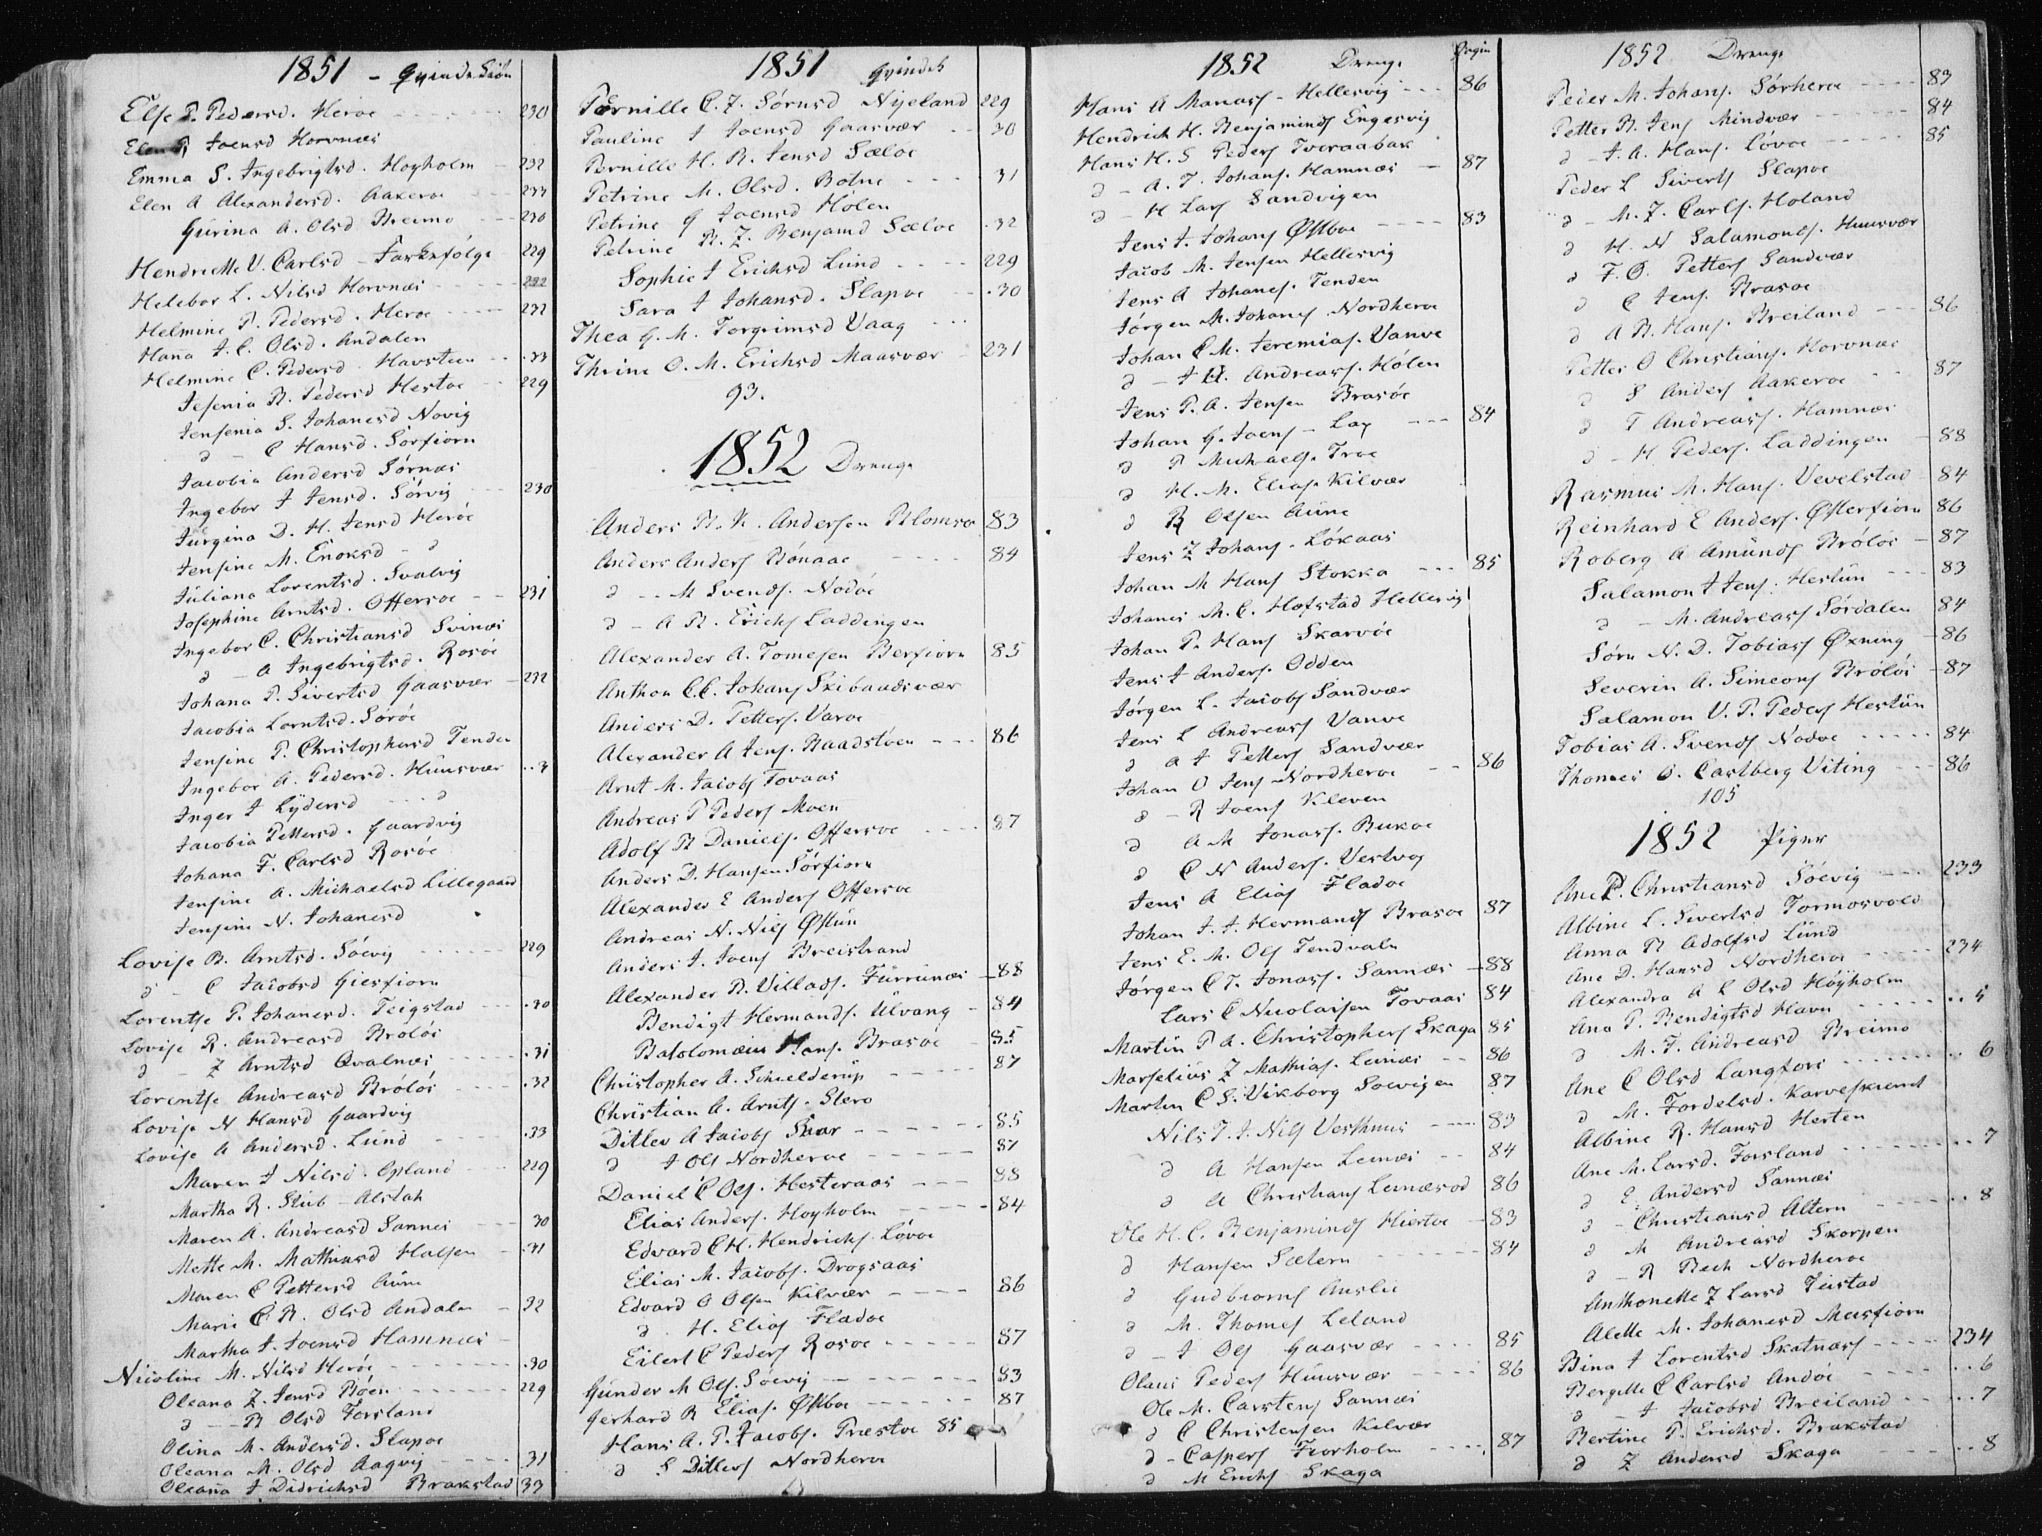 1851 - Qvindekiøn
Else P. Pedersd. Herøe - - - 230
Elen P Joensd Horvnæs
Emma S. Ingebrigtsd. Høyholm - 232
Elen A Alexandersd. Aakerøe - 233
Gurina A. Olsd Breimo - - 230
Hendrikke V. Carlsd - Forkefølge - 229
Helebor L. Nilsd Horvnæs - -
Helmine P. Pedersd. Herøe - - 232
Hana J. C. Olsd. Andalen
Helmine C. Pedersd Havsteen - - .33
Jesenia B. Pedersd Hestøe - - 229
Jensenia S. Johanesd Novig
d - C Hansd. Sørfiorn
Jacobia Andersd Sørnæs
Ingebor J Jensd. Sørvig - - 230
Jurgina D. H. Jensd Herøe
Jensine M. Enoksd - d
Juliana Lorentsd. Svalvig
Josephine Arntsd. Offersøe - - 231
Ingebor C. Christiansd Svinæs
d - A Ingebrigtsd. Rosøe
Johana P. Sivertsd Gaasvær - 232
Jacobia Lorntsd. Sørøe
Jensine P. Christophersd Tenden
Ingebor A. Pedersd. Huusvær - ..3
Inger J Lydersd - - d
Jacobia Pettersd. Gaardvig
Johana F. Carlsd Rosøe
Jensine A. Michaelsd Lillegaard
Jensine N. Johanesd
Lovise B. Arntsd. Søevig - - - 229
d - C Jacobsd Giesfiorn
Lorentse P. Johanesd. Teigstad - - .30
Lovise R. Andreasd Brøløs
d - Z Arntsd Qvalnæs - - .31
Lorentse Andreasd Brøløs - - .32
Lovise N Hansd Gaardvig
Lovise A Andersd. Lund - - .33
Maren J Nilsd. Opland - - 229
Martha R. Stub - Alstah
Maren A. Andreasd Sannes - - 30
Mette M. Mathiasd Halsen - .31
Maren C Pettersd Aune
Marie C. B. Olsd Andalen - 32
Martha J. Joensd Hamnæs -
Nicoline M. Nilsd Herøe - - - .30
Oleana Z. Jensd Bøen - - - 229
d - - B Olsd Forsland
Olina M. Andersd. Slapøe
Oleana M. Olsd Aagvig - - - 31
Oleana J Didrichsd Brakstad 33
1851 Qvindek
Pernille C. J. Sørnsd Nyeland 229
Pauline J Joensd Gaasvær - - 30
Pernille H. R. Jensd Sæløe
Petrine M. Olsd. Botne - - - 31
Petrine G Joensd Holen
Petrine B. Z. Benjamd Sæløe . 32
Sophie J Erichsd Lund - - - 229
Sara J Johansd. Slapøe - - .30
Thea G. M. Torgrimsd Vaag - - -
Thrine O. M. Erichsd Maasvær - 231
93.
1852 Drenge
Anders B. N. Andersen Blomsø 83
Anders Anders Bønaae - - - 84
d - - M Svends. Nodøe
d - A B. Erichs Laddingen
Alexander A. Tomesen Berfiorn 85
Anthon C C. Johans Skibaadsvær
Anders D. Petters. Varøe
Alexander A Jens. Baadstøen - - - 86
Arnt M. Jacobs Tovaas
Andreas P Peders Moen
Adolf B Daniels. Offersøe - - - 87
Anders D. Hansen Sørfiorn
Alexander E Anders Offersøe
Andreas N. Nils Østun
Anders J. Joens Breistrand
Alexander B. Villads. Furrunæs - 88
Bendigt Hermands. Ulvang - 84
Batolomæus Hans. Brasøe - 85
Christopher A. Schielderup - - - 87
Christian A. Arnts. Stero
Ditlev A Jacobs Skaar - - - 85
d J Ols Nordherøe - - - 87
Daniel C Ols. Hesteraas - - - 88
Elias Anders. Høyholm - - - 84
Edvard C H. Hendrichs. Løvøe
Elias M. Jacobs. Drogsaas
Edvard O Olsen Kilvær - - - 86
d. H. Elias Fladøe
Eilert C Peders Rosøe - - - 87
Gunder M Ols. Søevig - - - 83
Gerhard R Elias. Østbøe - - - 87
Hans A. P. Jacobs. Præstøe 85
d S Ditlevs Nordherøe
1852 Drenge Pagin
Hans A Manass - Hellesvig - - - 86
Hendrich H. Benjamins Engesvig
Hans H. S Peders Tveraabak
d - A. J. Johans. Hamnæs - 87
d - H Lars Sandvigen
Jens J. Johans Østbøe - - - 83
Jacob M. Jensen Hellesvig
Jens A Johanes. Tenden
Jørgen M. Johans Nordherøe
Johan C M. Jeremias. Vanve
d - J H. Andreass. Hølen
Jens P. A. Jensen Brasøe
Johan G. Joens - Lax - - - 84
d P Michaels. Troe
d H. M. Elias. Kilvær
d B Olsen Aune
Jens Z Johans. Løkaas
Johan M Hans Stokka - - - 85
Johanes M. C. Hofstad Hellesvig
Johan P. Hans Skarvøe
Jens J Anders. Odden
Jørgen L. Jacobs Sandvær
Jens L Andreass Vanve
d A J Petters Sandvær
Johan O Jens Nordherøe - - 86
d - R Joens Kleven
d A M Jonass. Bukøe
d C N Anders. Vestvog
Jens A Elias Fladøe
Johan J. J. Hermands Brasøe 87
Jens E. M. Ols Tendvaln
Jørgen C T. Jonass. Sannæs - 88
Lars C Nicolaisen Tovaas 84
Martin P A. Christophers Skaga 85
Marselius Z Mathias. Leinæs - - 86
Marten C S. Vikborg Søevigen 87
Nils J. J. Nils Vesthuus - - - 83
d A Hansen Leinæs - - 84
d A Christians Leinæsod 86
Ole H. C. Benjamins Hiertøe - 83
d Hansen Sætern - - - 84
d Gudbrans Ausliе
d M. Thomes Leland
d - J Ols Gaasvær - - - 85
Olaus Peders Huusvær - - - 86
Ole M. Carstens Sannæs
d C Christensen Kilvær
d - Caspers Fiorholm - - - 87
d M Erichs Skaga
1852 Drenge
Peder M. Johans. Sørherøe - - - 83
Petter B. Jens Mindvær - - - 84
d - J. A. Hans. Løvøe - - - 85
Peder L Siverts Slapøe
d - M. Z. Carls. Holand
d H. N Salamons. Huusvær
d J. O. Petters Sandvær
d C Jens. Brasøe
d A B. Hans. Breiland - - - 86
Petter O Christians. Horvnæs
d S Anders Aakerøe - - 87
d T Andreass. Hamnæs
d - H Peders. Laddingen - 88
Rasmus M. Hans. Vevelstad - 84
Reinhard E Anders. Østerfiorn 86
Roberg A Amunds Brøløs - 87
Salamon J Jens. Hestun - - - 83
d - M. Andreass Sørdalen 84
Sørn N. D. Tobiass Øxning - 86
Severin A. Simeons Brøløs - 87
Salamon V. P. Peders Hestun
Tobias A. Svends Nodøe - - - 84
Thomes O. Castberg Viting - - - 86
105
1852 Piger
Ane P. Christiansd Søevig - - - 233
Albine L. Sivertsd Tormosvold
Anna B Adolfsd Lund
Ane D. Hansd Nordherøe - - - 234
Alexandra A L Olsd Høyholm
Ana P. Bendigtsd Havn - - - .. 5
d M. J. Andreasd Breimo
Ane C Olsd Langfore - - - 6
d M. Fordelsd. Karveskiemt
Albine R. Hansd Hesten
Ane M. Larsd. Forsland - - - 7
d E. Andersd Sannæs
d - Christiansd Altern - - - 8
d M Andreasd Skorpen
d - R Bech Nordherøe
Anthonette Z Larsd Teistad
Alette M. Johanesd Meisfiorn
Bina J Lorentsd Skatnæss - - - 234
Bergitte C Carlsd Andøe - - - 6
d - J Jacobsd Breiland - - - 7
Bertine P. Erichsd. Brakstad
d Z Andersd Skaga - - - 8